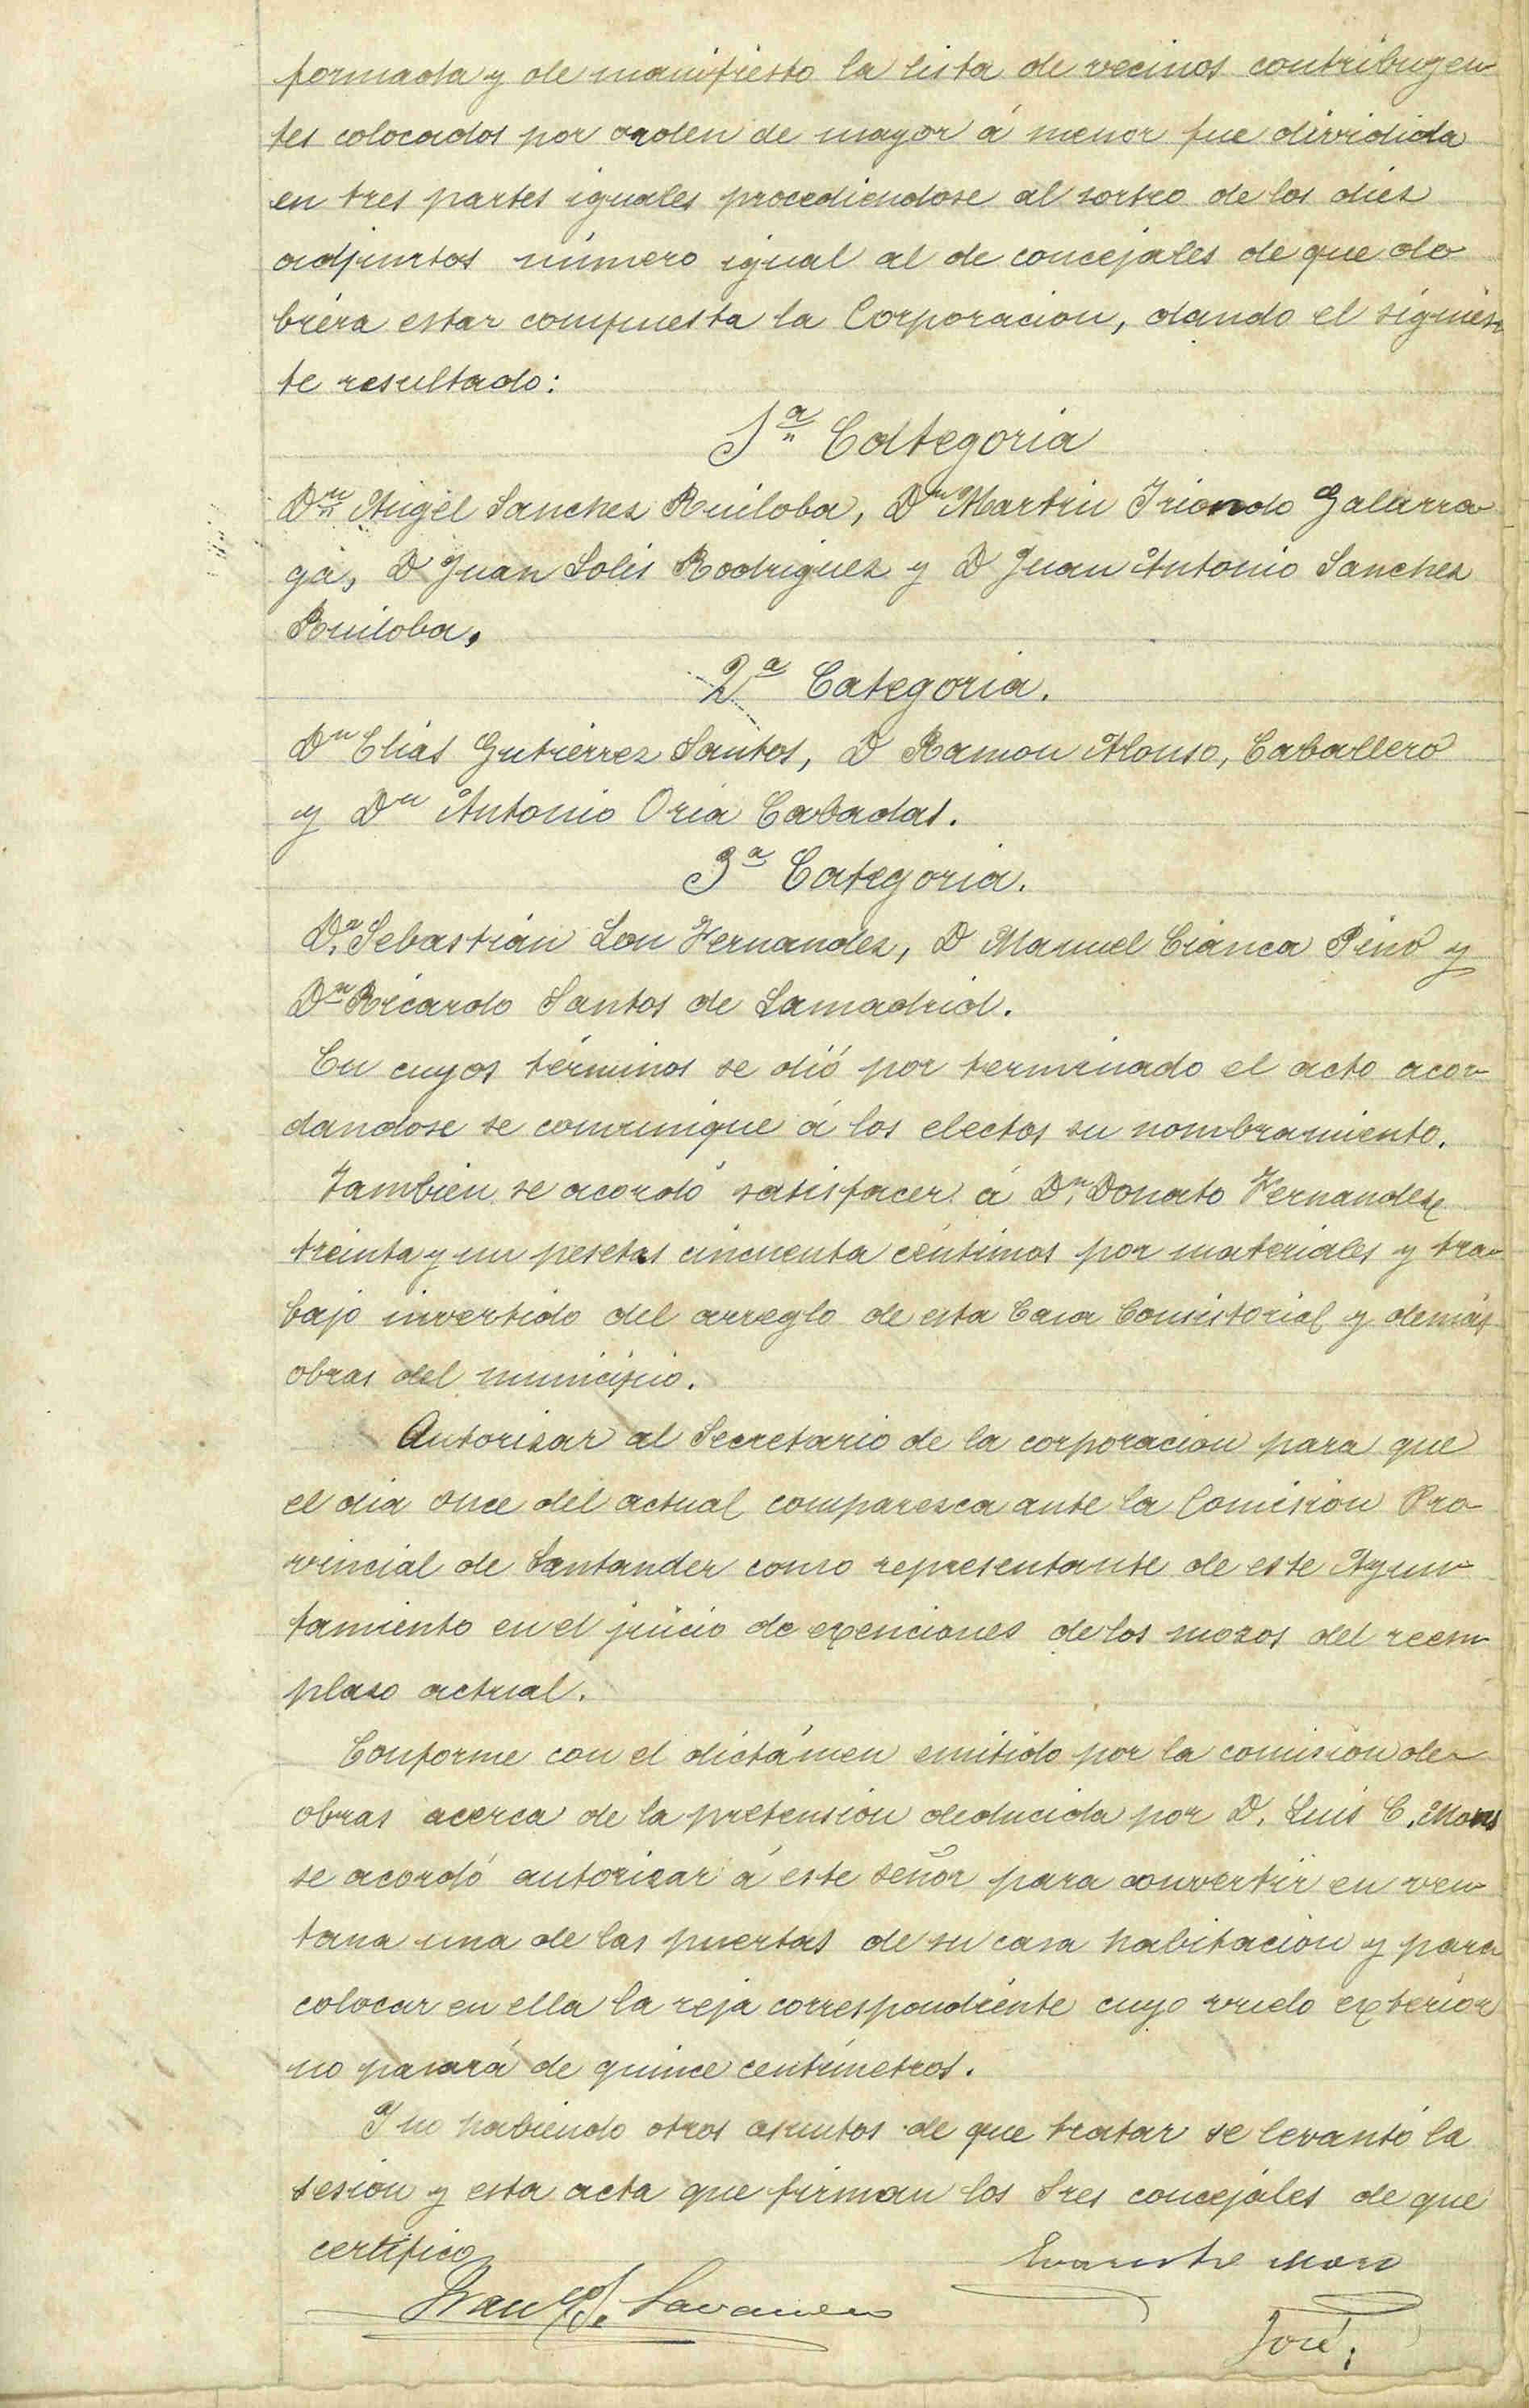 formada y de manifiesto la lista de vecinos contribuyen
tes colocados por orden de mayor á menor fue dividida
en tres partes iguales procediendose al sorteo de los diez
adjuntos número igual al de concejales de que de
biera estar compuesta la Corporacion, dando el siguien
te resultado:
1ª Categoria
Dn Angel Sanchez Ruiloba, Dn Martin Iriondo Galarra
ga, D Juan Solis Rodriguez y D Juan Antonio Sanchez
Ruiloba.
2ª Categoria.
Dn Elias Gutierrez Santos, D Ramon Alonso, Caballero
y Dn Antonio Oria Cabadas.
3ª Categoria.
Dn Sebastián Lou Fernandez, D Manuel Cianca Pino y
Dn Ricardo Santos de Lamadrid.
En cuyos términos se dió por terminado el acto acor
dandose se comunique á los electos su nombramiento.
Tambien se acordó satisfacer á Dn Donato Fernandez
treinta y un pesetas cincuenta céntimos por materiales y tra
bajo invertido del arreglo de esta Casa Consistorial y demás
obras del municipio.
Autorizar al Secretario de la corporacion para que
el dia once del actual comparezca ante la Comisión Pro
vincial de Santander como representante de este Ayun
tamiento en el juicio de exenciones de los mozos del reem
plazo actual.
Conforme con el dictámen emitido por la comisión de
obras acerca de la pretensión deducida por D. Luis C. Mons
se acordó autorizar á este señor para convertir en ven
tana una de las puertas de su casa habitación y para
colocar en ella la reja correspondiente cuyo vuelo exterior
no pasará de quince centimetros.
Y no habiendo otros asuntos de que tratar se levantó la
sesion y esta acta que firman los Sres concejales de que
certifico
José